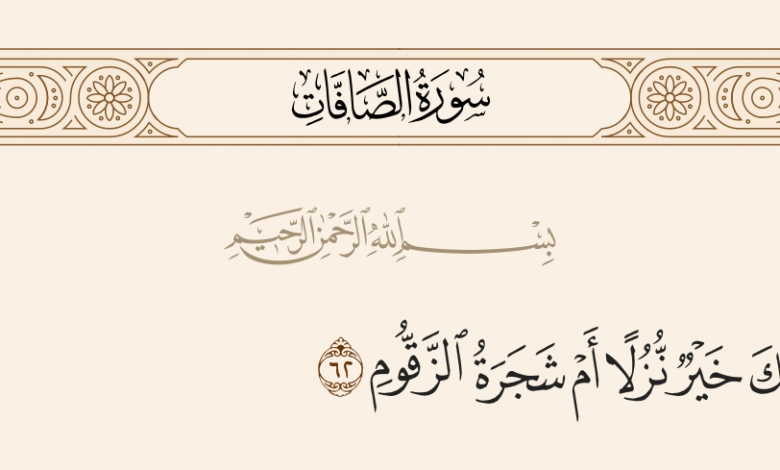 سُورَةُ الصَّافَّاتِ
بِسْمِ ٱللَّهِ ٱلرَّحْمَٰنِ ٱلرَّحِيمِ
خَيْرٌ نُّزُلًا أَمْ شَجَرَةُ ٱلزَّقُّومِ ٦٢